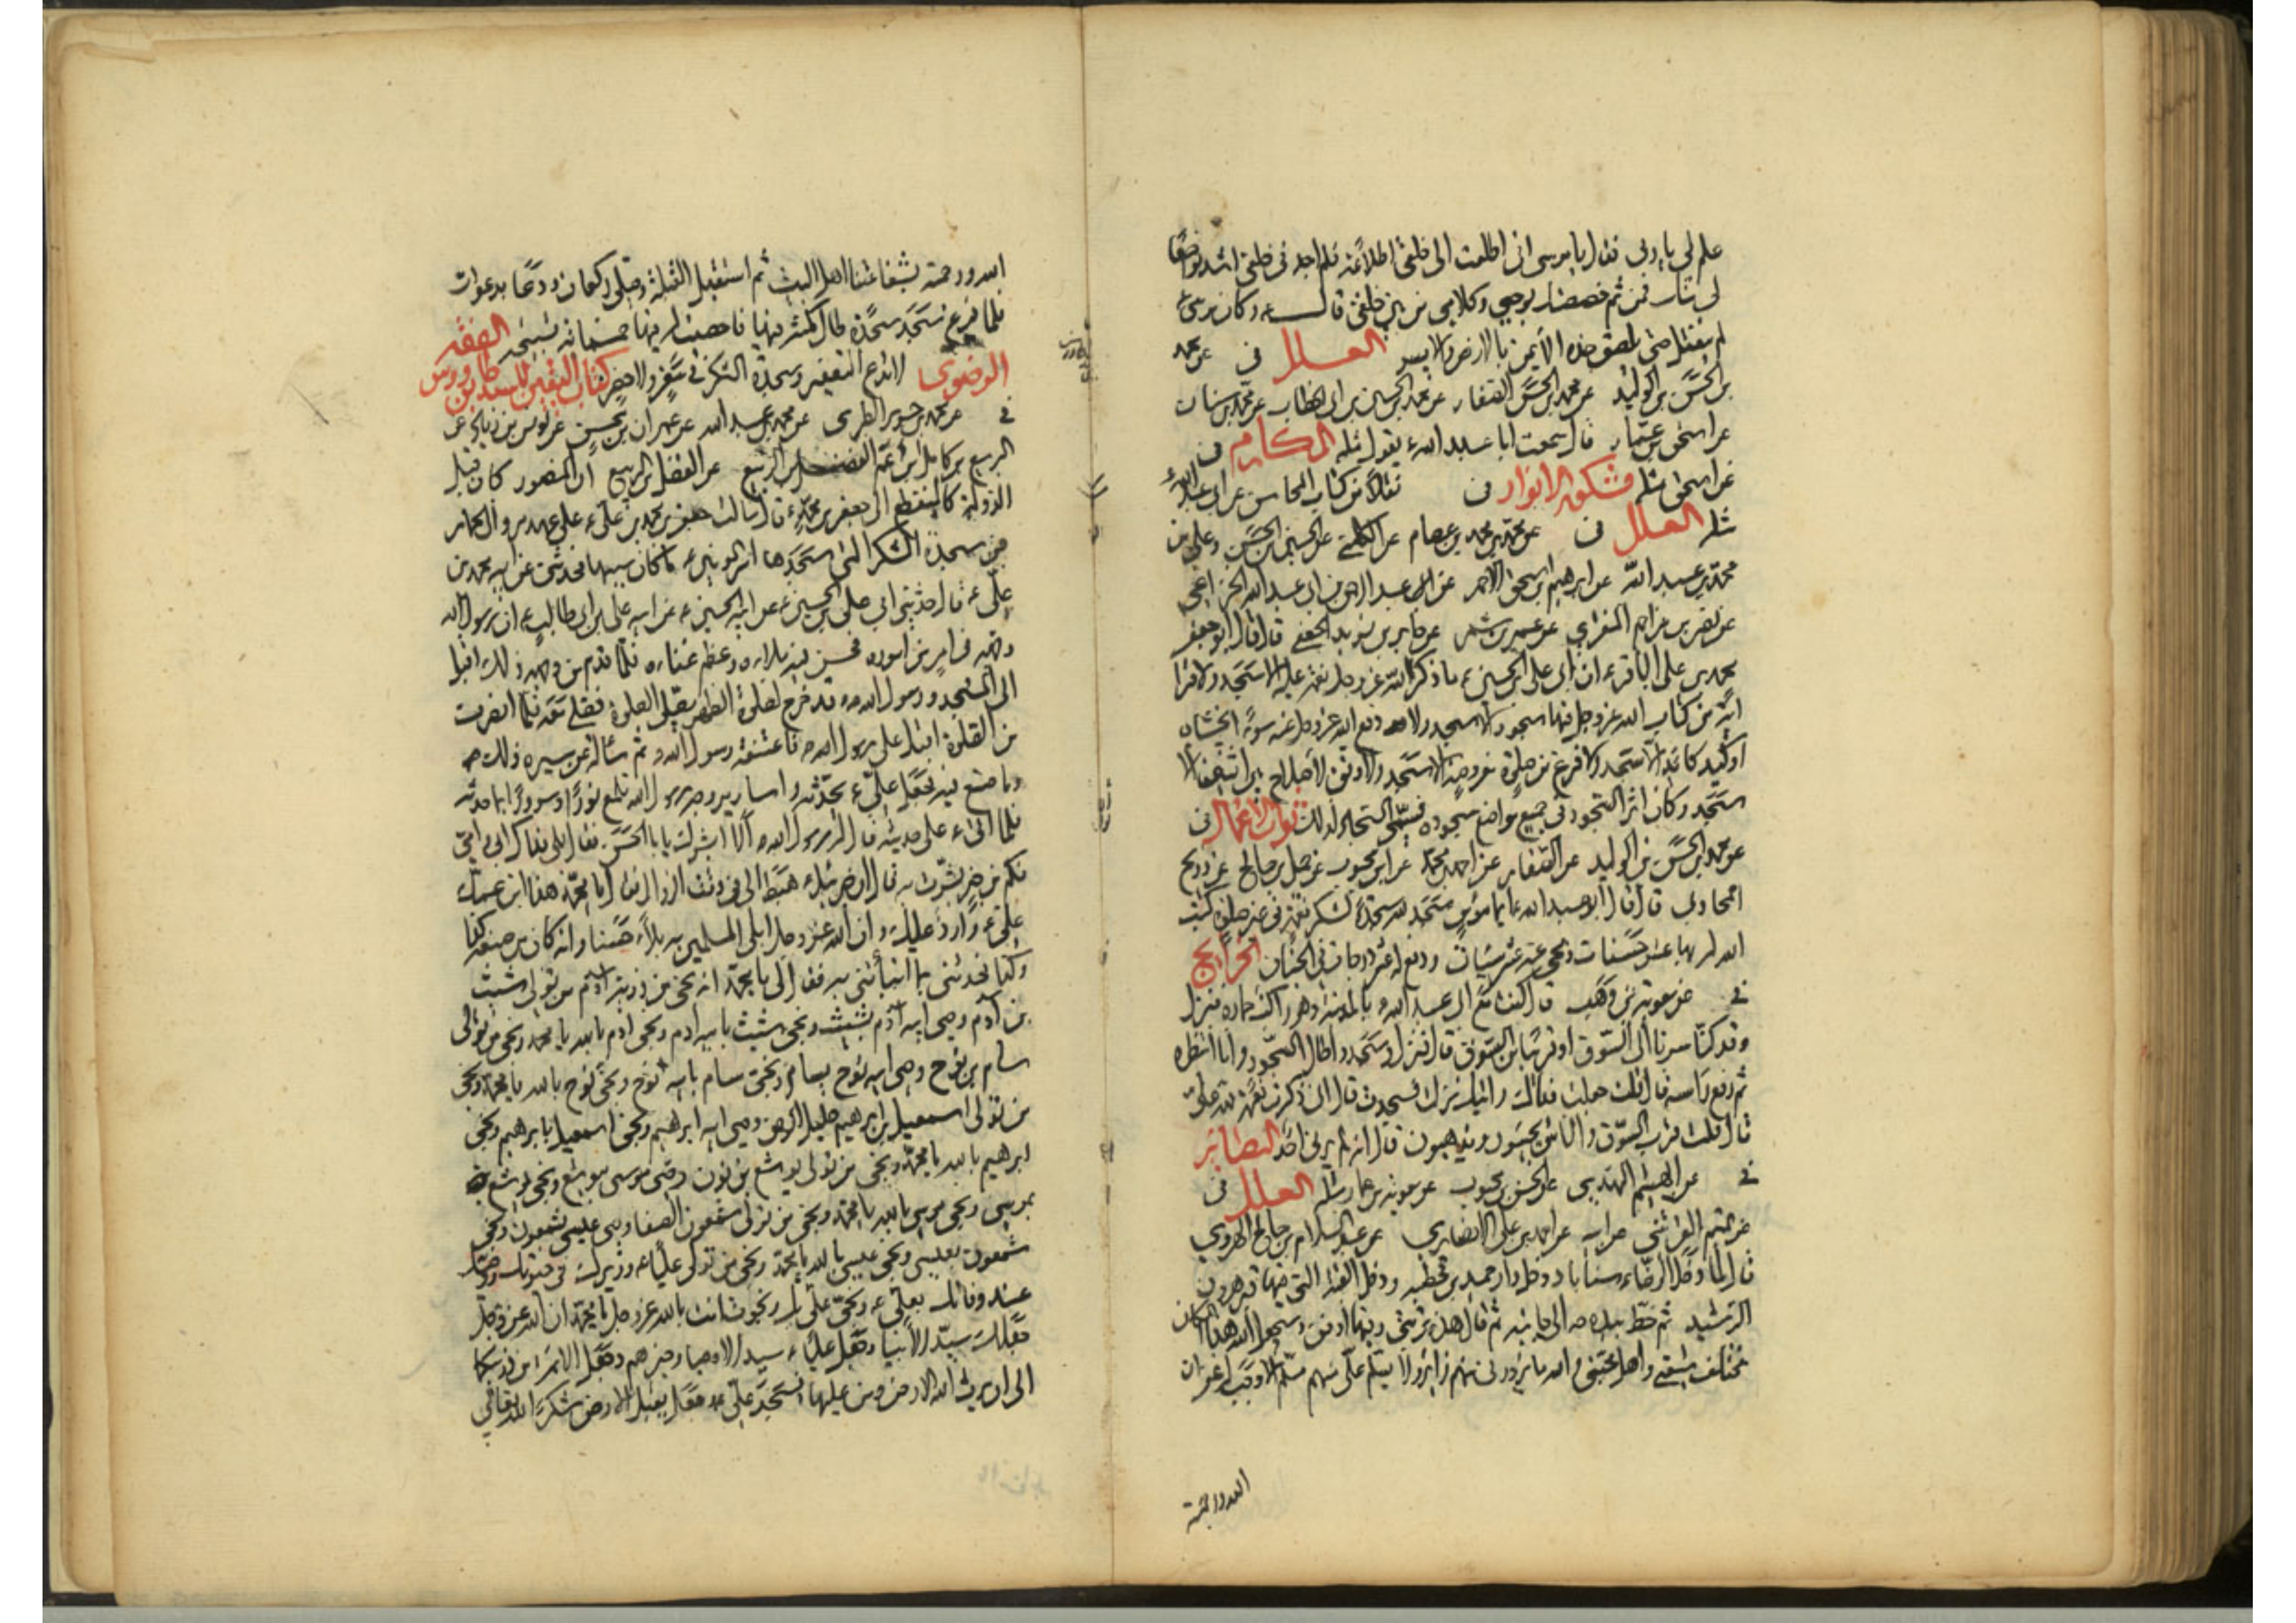 علم لی یا رب فقال یا موسی انی اطلعت الی خلقی اطلاعة فلم اجد فی خلقی اشد تواضعا
لی منك فمن ثم خصصتك بوحیی وكلامی من بین خلقی قال ــه وكان موسی ع
لم ینفتل حتی یلصق خده الأیمن بالارض والایسر العلل فی عن محمد
بن الحسن بن الولید عن محمد بن الحسن الصفار عن محمد بن الحسین بن ابی الخطاب عن محمد بن سنان
عن اسحق بن عمار قال سمعت ابا عبد الله ع یقول مثله المكارم فی
عن اسحق مثله مشكوة الانوار فی نقلا من كتاب المحاسن عن ابی عبد الله ع
مثله العلل فی عن محمد بن محمد بن عصام عن الكلینی عن الحسین بن الحسن وعلی بن
محمد بن عبد الله عن ابرهیم بن اسحق الاحمر عن عبد الرحمن بن عبد الله الخزاعی
عن نصر بن مزاحم المنقری عن عمر بن شمر عن جابر بن یزید الجعفی قال قال ابو جعفر
محمد بن علی الباقر ع ان ابی علی بن الحسین ع ما ذكر لله عز وجل نعمة علیه الا سجد ولا قرأ
آیة من كتاب الله عز وجل فیها سجود الا سجد ولا دفع الله عز وجل عنه سوءا یخشاه
او كید كائد الا سجد ولا فرغ من صلوة مفروضة الا سجد ولا وفق لاصلاح بین اثنین الا
سجد وكان اثر السجود فی جمیع مواضع سجوده فسمی السجاد لذلك ثواب الاعمال فی
عن محمد بن الحسن بن الولید عن الصفار عن احمد بن محمد عن ابن محبوب عن جمیل بن صالح عن ذریح
المحاربی قال قال ابو عبد الله ع ایما مؤمن سجد لله سجدة لشكر نعمة فی غیر صلوة كتب
الله له بها عشر حسنات ومحی عنه عشر سیئات ورفع له عشر درجات فی الجنان الخرایج
فی عن معویة بن وهب قال كنت مع ابی عبد الله ع بالمدینة وهو راكب حماره فنزل
وقد كنا صرنا الی السوق او قریبا من السوق قال فنزل وسجد واطال السجود وانا انتظره
ثم رفع رأسه قال قلت جعلت فداك رایتك نزلت فسجدت قال انی ذكرت نعمة لله علی
قال قلت قرب السوق والناس یجیئون ویذهبون قال انه لم یرنی احد البصائر
فی عن الهیثم النهدی عن الحسن بن محبوب عن معویة بن عمار مثله العلل فی
عن تمیم القرشی عن ابیه عن احمد بن علی الانصاری عن عبد السلام بن صالح الهروی
قال لما دخل الرضاء سناباد دخل دار حمید بن قحطبه ودخل القبة التی فیها قبر هرون
الرشید ثم خط بیده الی جانبه ثم قال هذه تربتی وفیها ادفن وسیجعل الله هذا المكان
مختلف شیعتی واهل محبتی والله ما یزورنی منهم زائر ولا یسلم علی منهم مسلم الا وجب له غفران
الله ورحمته
الله ورحمته بشفاعتنا اهل البیت ثم استقبل القبلة وصلی ركعات ودعا بدعوات
فلما فرغ سجد سجدة طال مكثه فیها فاحصیت له فیها خمسمائة تسبیحه الفقه
الرضوی لا تدع التعفیر وسجدة الشكر فی سفر ولا حضر كتاب الیقین للسید بن طاووس
فی عن محمد بن جریر الطبری عن محمد بن عبد الله عن عمران بن محسن عن یونس بن زیاد عن
الربیع بن كامل ابن عم الفضل بن الربیع عن الفضل بن الربیع ان المنصور كان قبل
الدولة كالمنقطع الی جعفر بن محمد ع قال سالت جعفر بن محمد بن علی ع علی عهد مروان الحمار
عن سجدة الشكر التی سجدها امیر المؤمنین ع ما كان سببها فحدثنی عن ابیه محمد بن
علی ع قال حدثنی ابی علی بن الحسین ع عن ابیه الحسین ع عن ابیه علی بن ابی طالب ع ان رسول الله
وجهه فی امر من اموره فحسن فیه بلاؤه وعظم عناؤه فلما قدم من وجهه ذلك اقبل
الی المسجد ورسول الله ص قد خرج لصلوة الظهر یصلی الصلوة فصلی معه فلما انصرف
من الصلوة اقبل علی رسول الله ص فاعتنقه رسول الله ص ثم سأله عن مسیره ذلك
وما صنع فیه فجعل علی ع یحدثه واساریر وجه رسول الله تلمع نورا وسرورا بما حدثه
فلما اتی ع علی حدیثه قال له رسول الله ص ألا ابشرك یا ابا الحسن فقال بلی فداك ابی وامی
فكم من خیر بشرت به قال ان جبرئیل ع هبط الی فی وقت الزوال فقال یا محمد هذا ابن عمك
علی ع وارد علیك وان الله عز وجل ابلی المسلمین به بلاء حسنا وانه كان من صنعه كذا
وكذا فحدثنی بما انبأتنی به فقال لی یا محمد انه نجی من ذریة آدم من تولی شیث
بن آدم وصی ابیه آدم بشیث ونجی شیث بابیه ادم ونجی ادم بالله یا محمد ونجی من تولی
سام بن نوح وصی ابیه نوح بسام ونجی سام بابیه نوح ونجی نوح بالله یا محمد ونجی
من تولی اسمعیل بن ابرهیم خلیل الرحمن وصی ابیه ابرهیم ونجی اسمعیل بابرهیم ونجی
ابرهیم بالله یا محمد ونجی من تولی یوشع بن نون وصی موسی بیوشع ونجی یوشع
بموسی ونجی موسی بالله یا محمد ونجی من تولی شمعون الصفا وصی عیسی بشمعون ونجی
شمعون بعیسی ونجی عیسی بالله یا محمد ونجی من تولی علیا ع وزیرك فی حیوتك ووصیك
عند وفاتك بعلی ع ونجی علی بك ونجوت انت بالله عز وجل یا محمد ان الله عز وجل
جعلك سید الأنبیاء وجعل علیا ع سید الاوصیا وخیرهم وجعل الائمة من ذریتكما
الی ان یرث الله الارض ومن علیها فسجد علی ع وجعل یقبل الارض شكرا لله تعالی